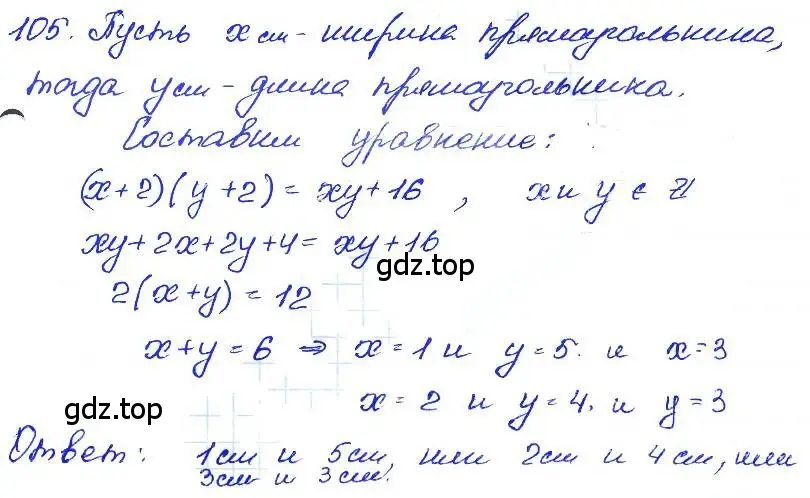 105. Пусть x см - ширина прямоугольника,
тогда y см - длина прямоугольника.
Составим уравнение:
(x+2)(y+2) = xy+16 , x и y ∈ Z
xy+2x+2y+4= xy+16
gdz.top
2(x+y) = 12
x+y = 6 ⇒ x=1 и y=5. и x=3
x=2 и y=4. и y=3
gdz.top
Ответ: 1см и 5см, или 2см и 4см, или
3см и 3см.